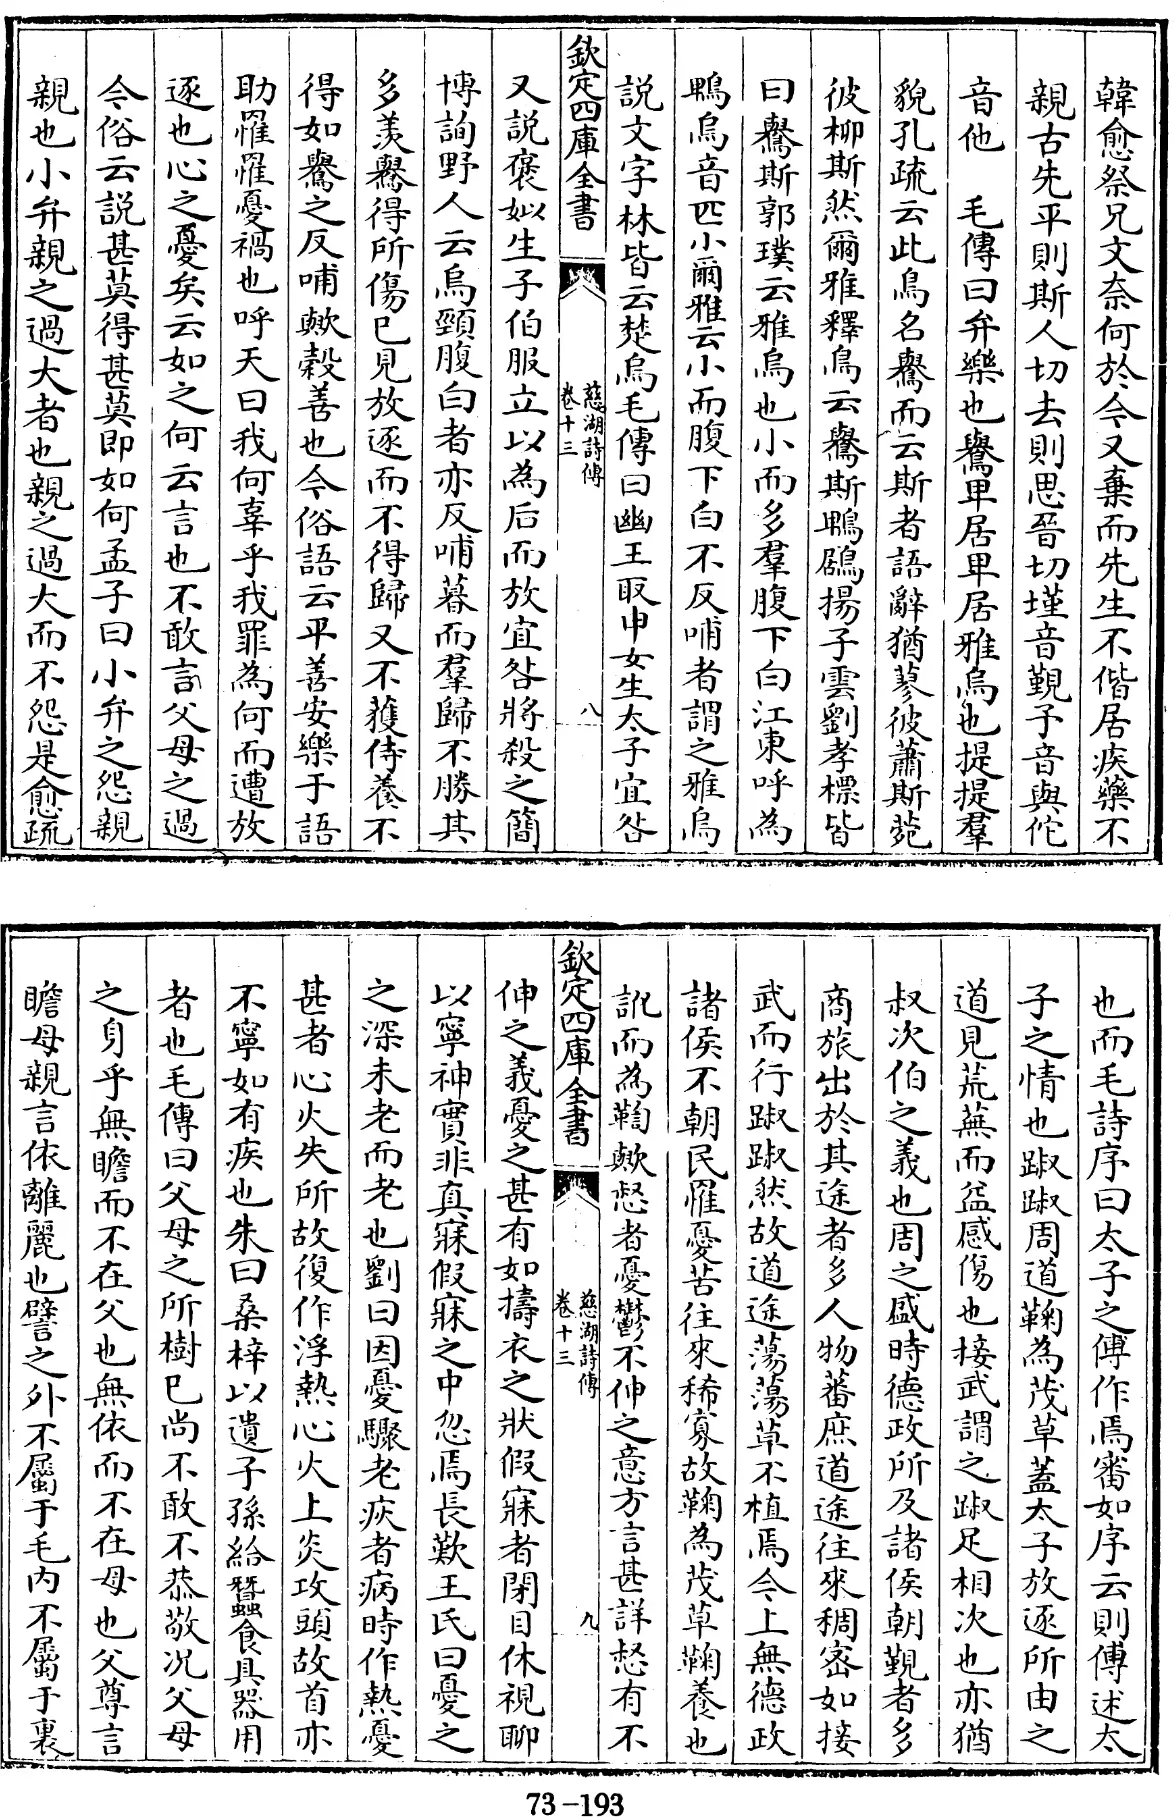 韓愈祭兄文奈何於今又棄而先生不偕居疾藥不
親古先平則斯人切去則思晉切墐音覲予音與佗
音他　毛傳曰弁樂也鸒卑居卑居雅烏也提提羣
貌孔疏云此鳥名鸒而云斯者語辭猶蓼彼蕭斯菀
彼柳斯然爾雅釋鳥云鸒斯鵯鶋揚子雲劉孝標皆
曰鸒斯郭璞云雅烏也小而多羣腹下白江東呼為
鵯烏音匹小爾雅云小而腹下白不反哺者謂之雅烏
説文字林皆云楚烏毛傳曰幽王取申女生太子宜咎
欽定四庫全書
慈湖詩傳
卷十三
八
又説褒姒生子伯服立以為后而放宜咎將殺之簡
博詢野人云烏頸腹白者亦反哺暮而羣歸不勝其
多羨鸒得所傷已見放逐而不得歸又不獲侍養不
得如鸒之反哺歟穀善也今俗語云平善安樂于語
助罹罹憂禍也呼天曰我何辜乎我罪為何而遭放
逐也心之憂矣云如之何云言也不敢言父母之過
今俗云説甚莫得甚莫即如何孟子曰小弁之怨親
親也小弁親之過大者也親之過大而不怨是愈疏
也而毛詩序曰太子之傅作焉審如序云則傅述太
子之情也踧踧周道鞠為茂草蓋太子放逐所由之
道見荒蕪而益感傷也接武謂之踧足相次也亦猶
叔次伯之義也周之盛時德政所及諸侯朝覲者多
商旅出於其途者多人物蕃庶道途往來稠宻如接
武而行踧踧然故道途蕩蕩草不植焉今上無德政
諸侯不朝民罹憂苦往來稀寡故鞠為茂草鞠養也
訛而為鞫歟惄者憂鬱不伸之意方言甚詳惄有不
欽定四庫全書
慈湖詩傳
卷十三
九
伸之義憂之甚有如擣衣之狀假寐者閉目休視聊
以寧神實非真寐假寐之中忽焉長歎王氏曰憂之
之深未老而老也劉曰因憂驟老疢者病時作熱憂
甚者心火失所故復作浮熱心火上炎攻頭故首亦
不寧如有疾也朱曰桑梓以遺子孫給蠶食具器用
者也毛傳曰父母之所樹已尚不敢不恭敬況父母
之身乎無瞻而不在父也無依而不在母也父尊言
瞻母親言依離麗也譬之外不屬于毛内不屬于裏
73-193